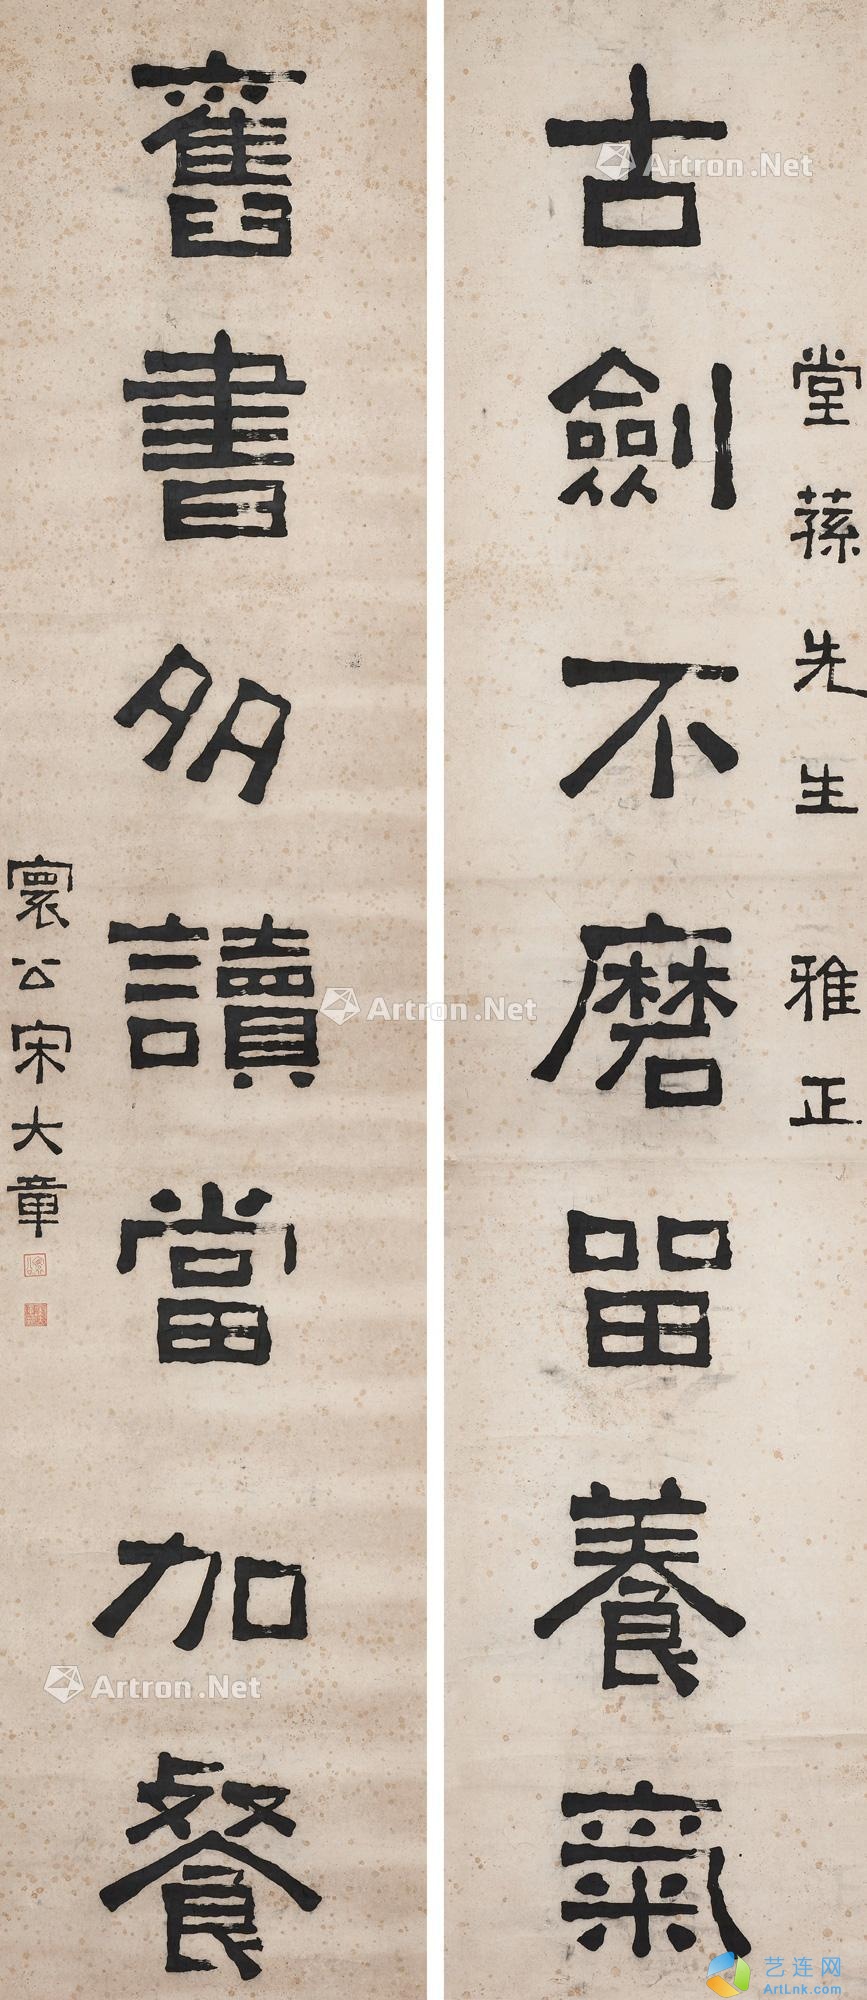 堂蓀先生 雅正
古劍不磨畱養氣
舊書多讀當加餐
寰公宋大章
Artron.Net
Artron.Net
Artron.Net
艺连网
ArtLnk.com